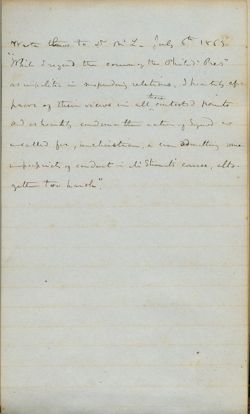 Wrote to Dr McL. July 6th 1865.
"While I regard the course of the Philad. Presby
as impolitic in suspending relations, I heartily ap-
prove of their views in all the contested points
and as heartily condemn the action of Synod as
uncalled for, unchristian, & even admitting some
impropriety of conduct in Mr Stuart's course, alto-
gether too harsh".